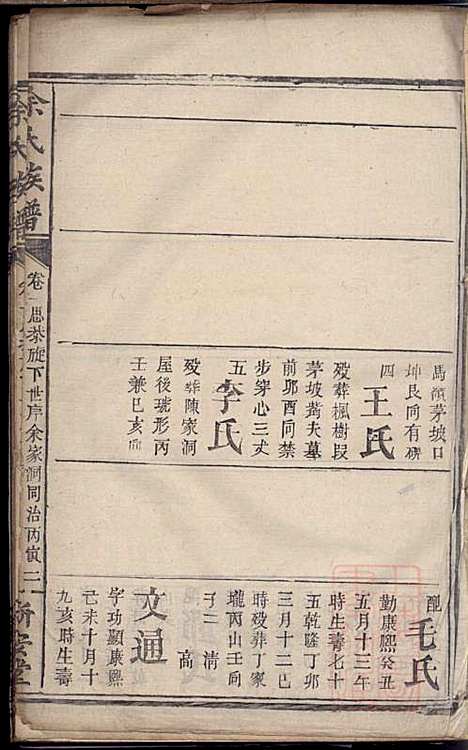 馬瀕茅坡口
坤艮向有碑
四 王氏
歿葬楓樹段
茅坡蒋夫墓
前卯酉向禁
步穿心三丈
五 李氏
歿葬陳家洞
屋後琥形丙
壬兼巳亥向
配 毛氏
勤康熙癸丑
五月十三年
時生壽七十
五乾隆丁卯
三月十二巳
時歿葬丁家
壠丙山壬向
子二 清
高
文通
字功顯康熙
己未十月十
九亥時生壽
余氏族譜
卷一恩恭旋下世序余家洞同治丙寅二
新安堂